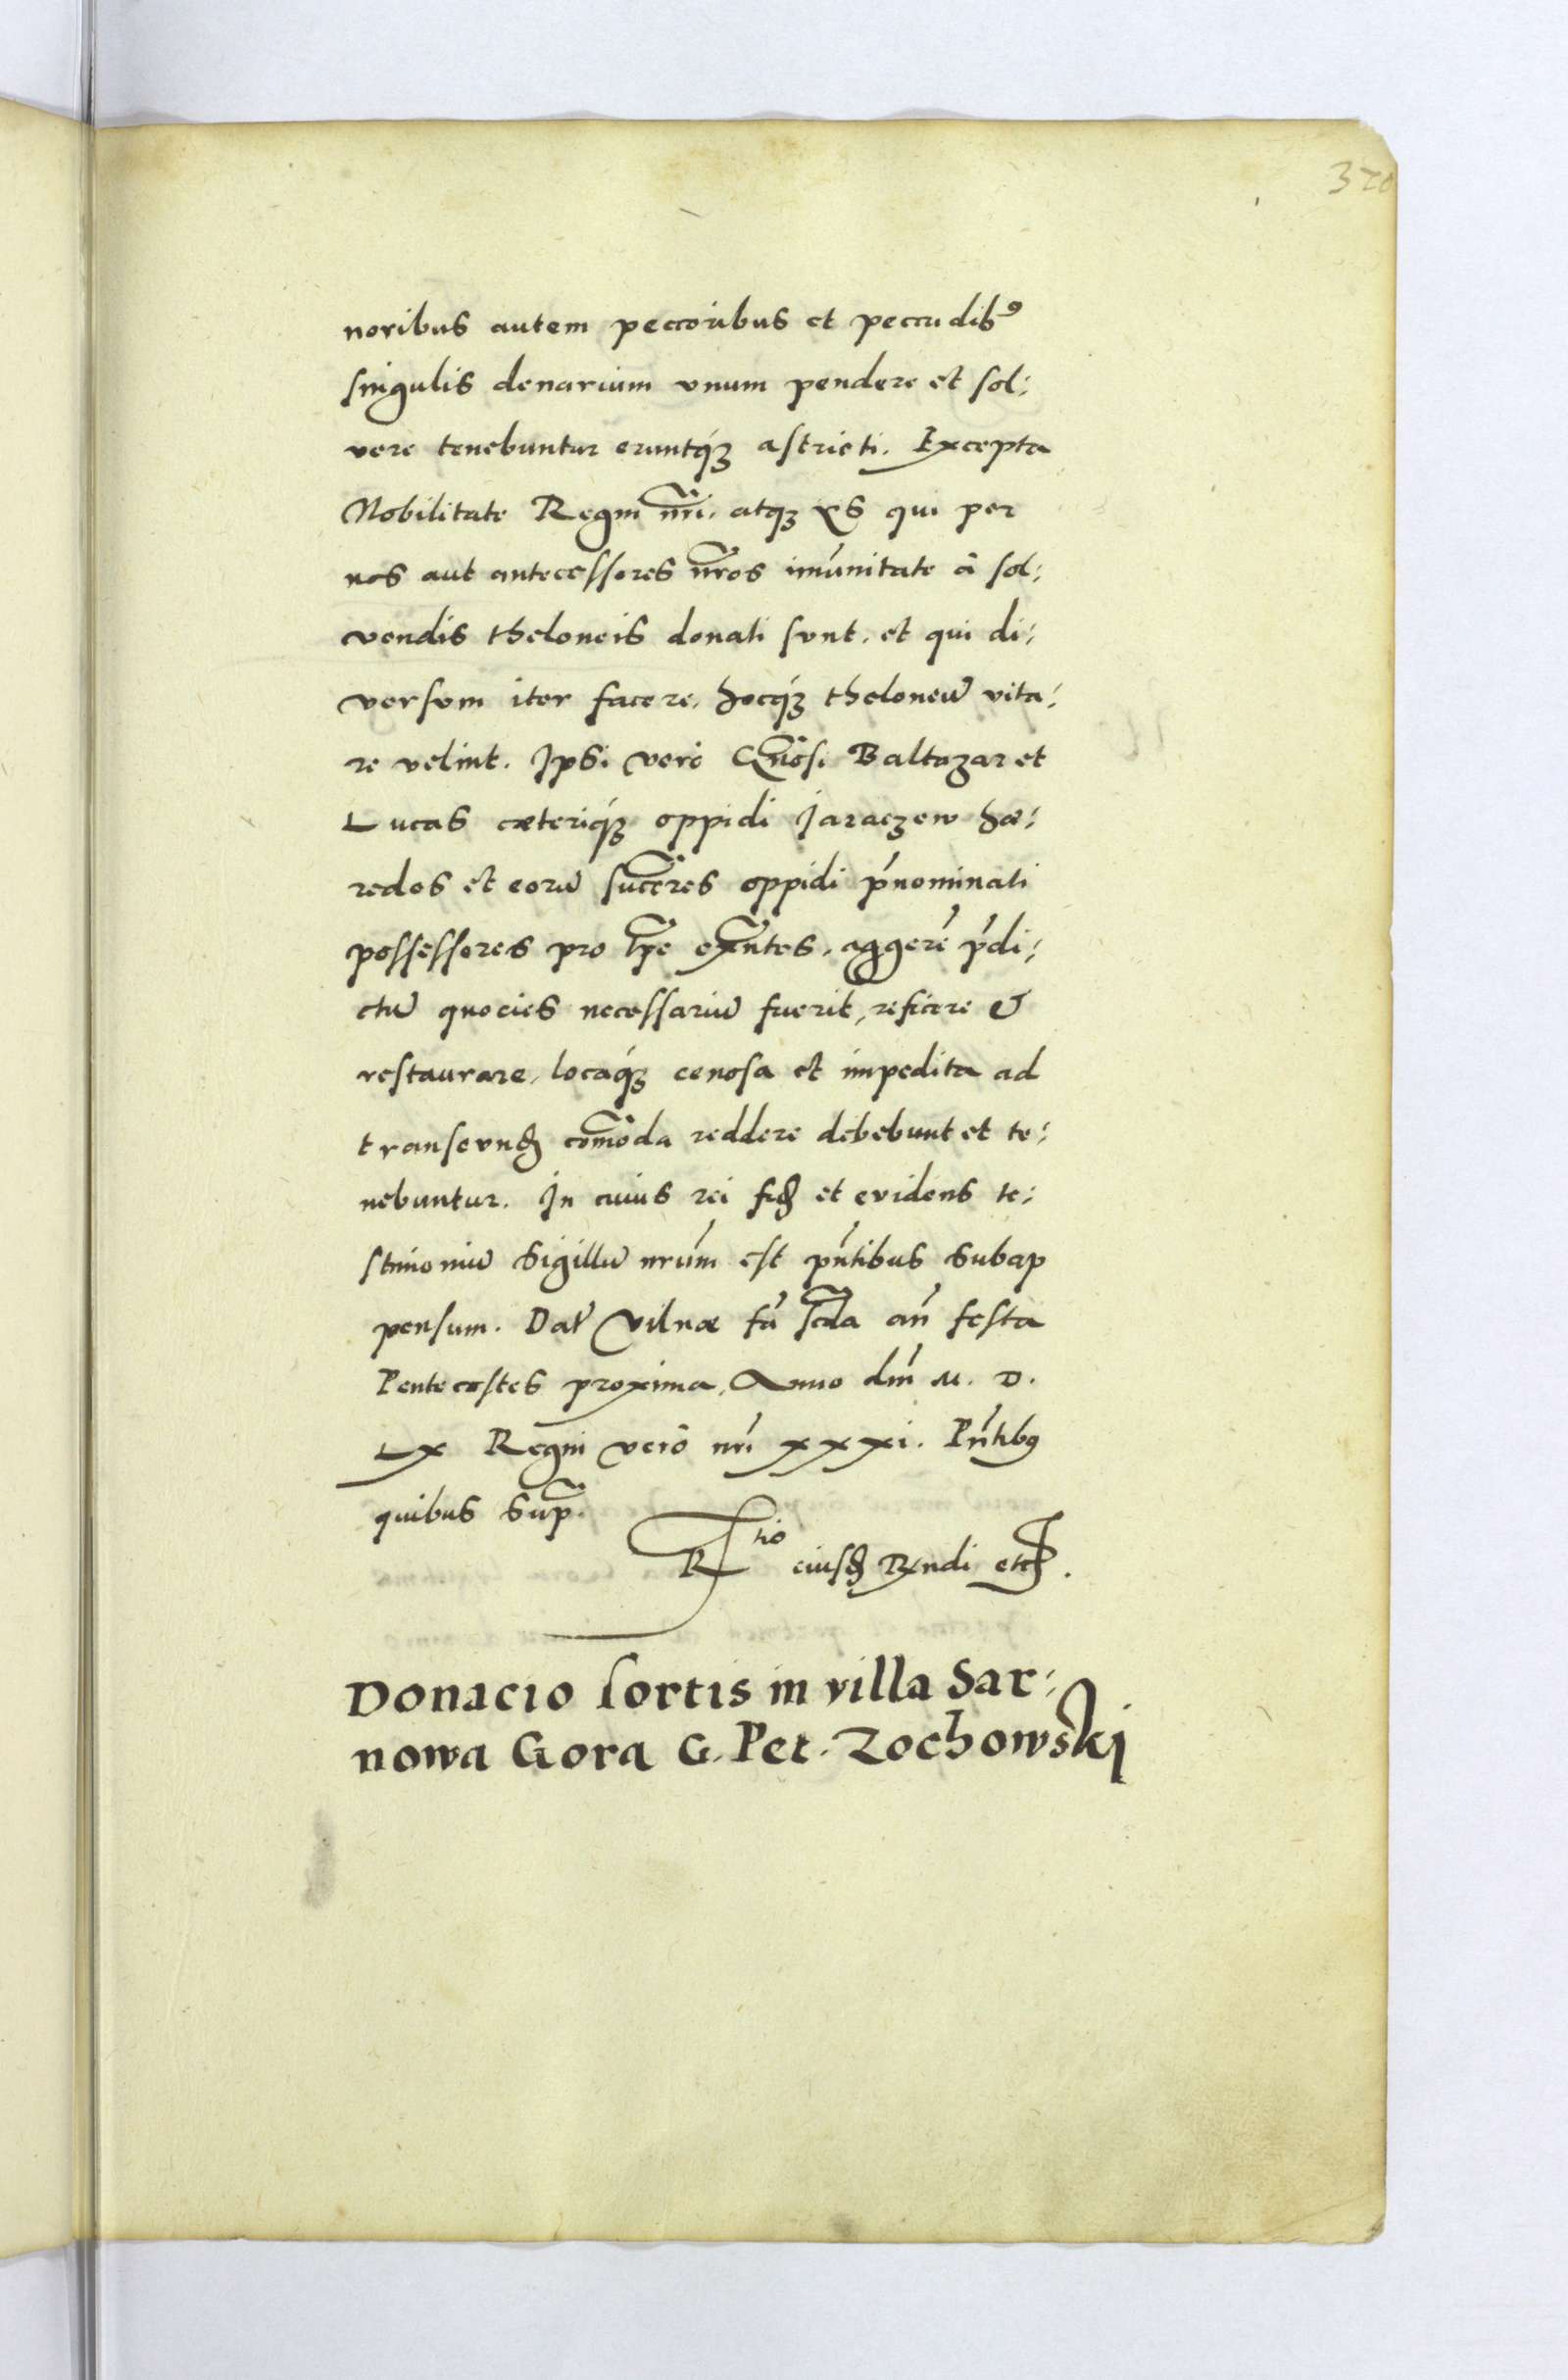 320
noribus autem peccoribus et peccudib⁹
singulis denarium vnum pendere et sol:
vere tenebuntur eruntq́ꝫ astricti. Excepta
Nobilitate Regni nr̃i. atqꝫ ys qui per
nos aut antecessores nr̃os im̃unitate â sol:
vendis theloneis donati sunt. et qui di:
versum iter facere, hocq́ꝫ theloneũ vita:
re velint. Ipsi verò Gn̄osi Baltazar et
Lucas cæteriq́ꝫ oppidi Jaraczew hæ:
redes et eorũ succr̃es oppidi p̃nominati
possessores pro tp̃e exñtes, aggerẽ p̃di:
ctũ quocies necessariũ fuerit, reficere &
restaurare, locaq́ꝫ cenosa et impedita ad
transeundꝫ com̃oda reddere debebunt et te:
nebuntur. In cuius rei fidꝫ et evidens te:
stimoniũ Sigillũ nrũm est pñtibus subap
pensum. Dat̃ Vilnæ f̃a scda añ festa
Pentecostes proxima, Anno dñi M. D.
LX Regni verò nr̃i xxxi. Pñtib⁹
quibus sup̃.
R tio eiusdꝫ Rx̃ndi etc.
Donacio sortis in villa Sar:
nowa Gora G. Pet. Zochowski